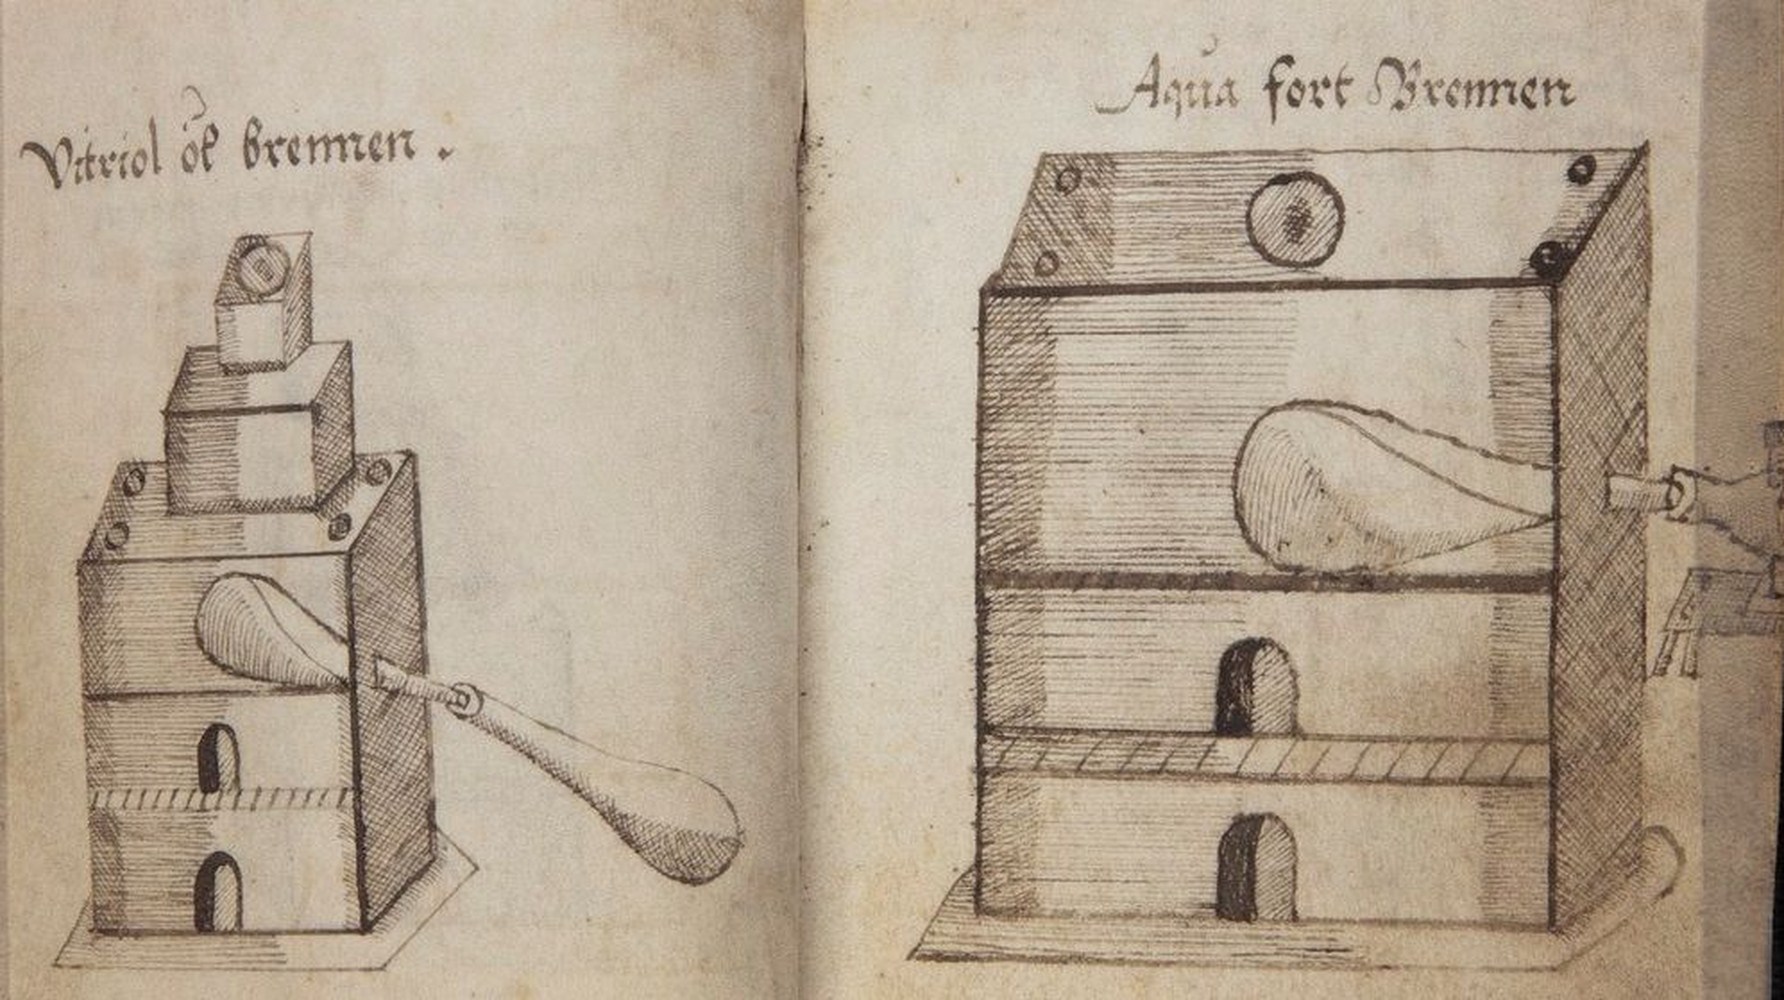 Vitriol öl brennen .
Aqua fort Brennen